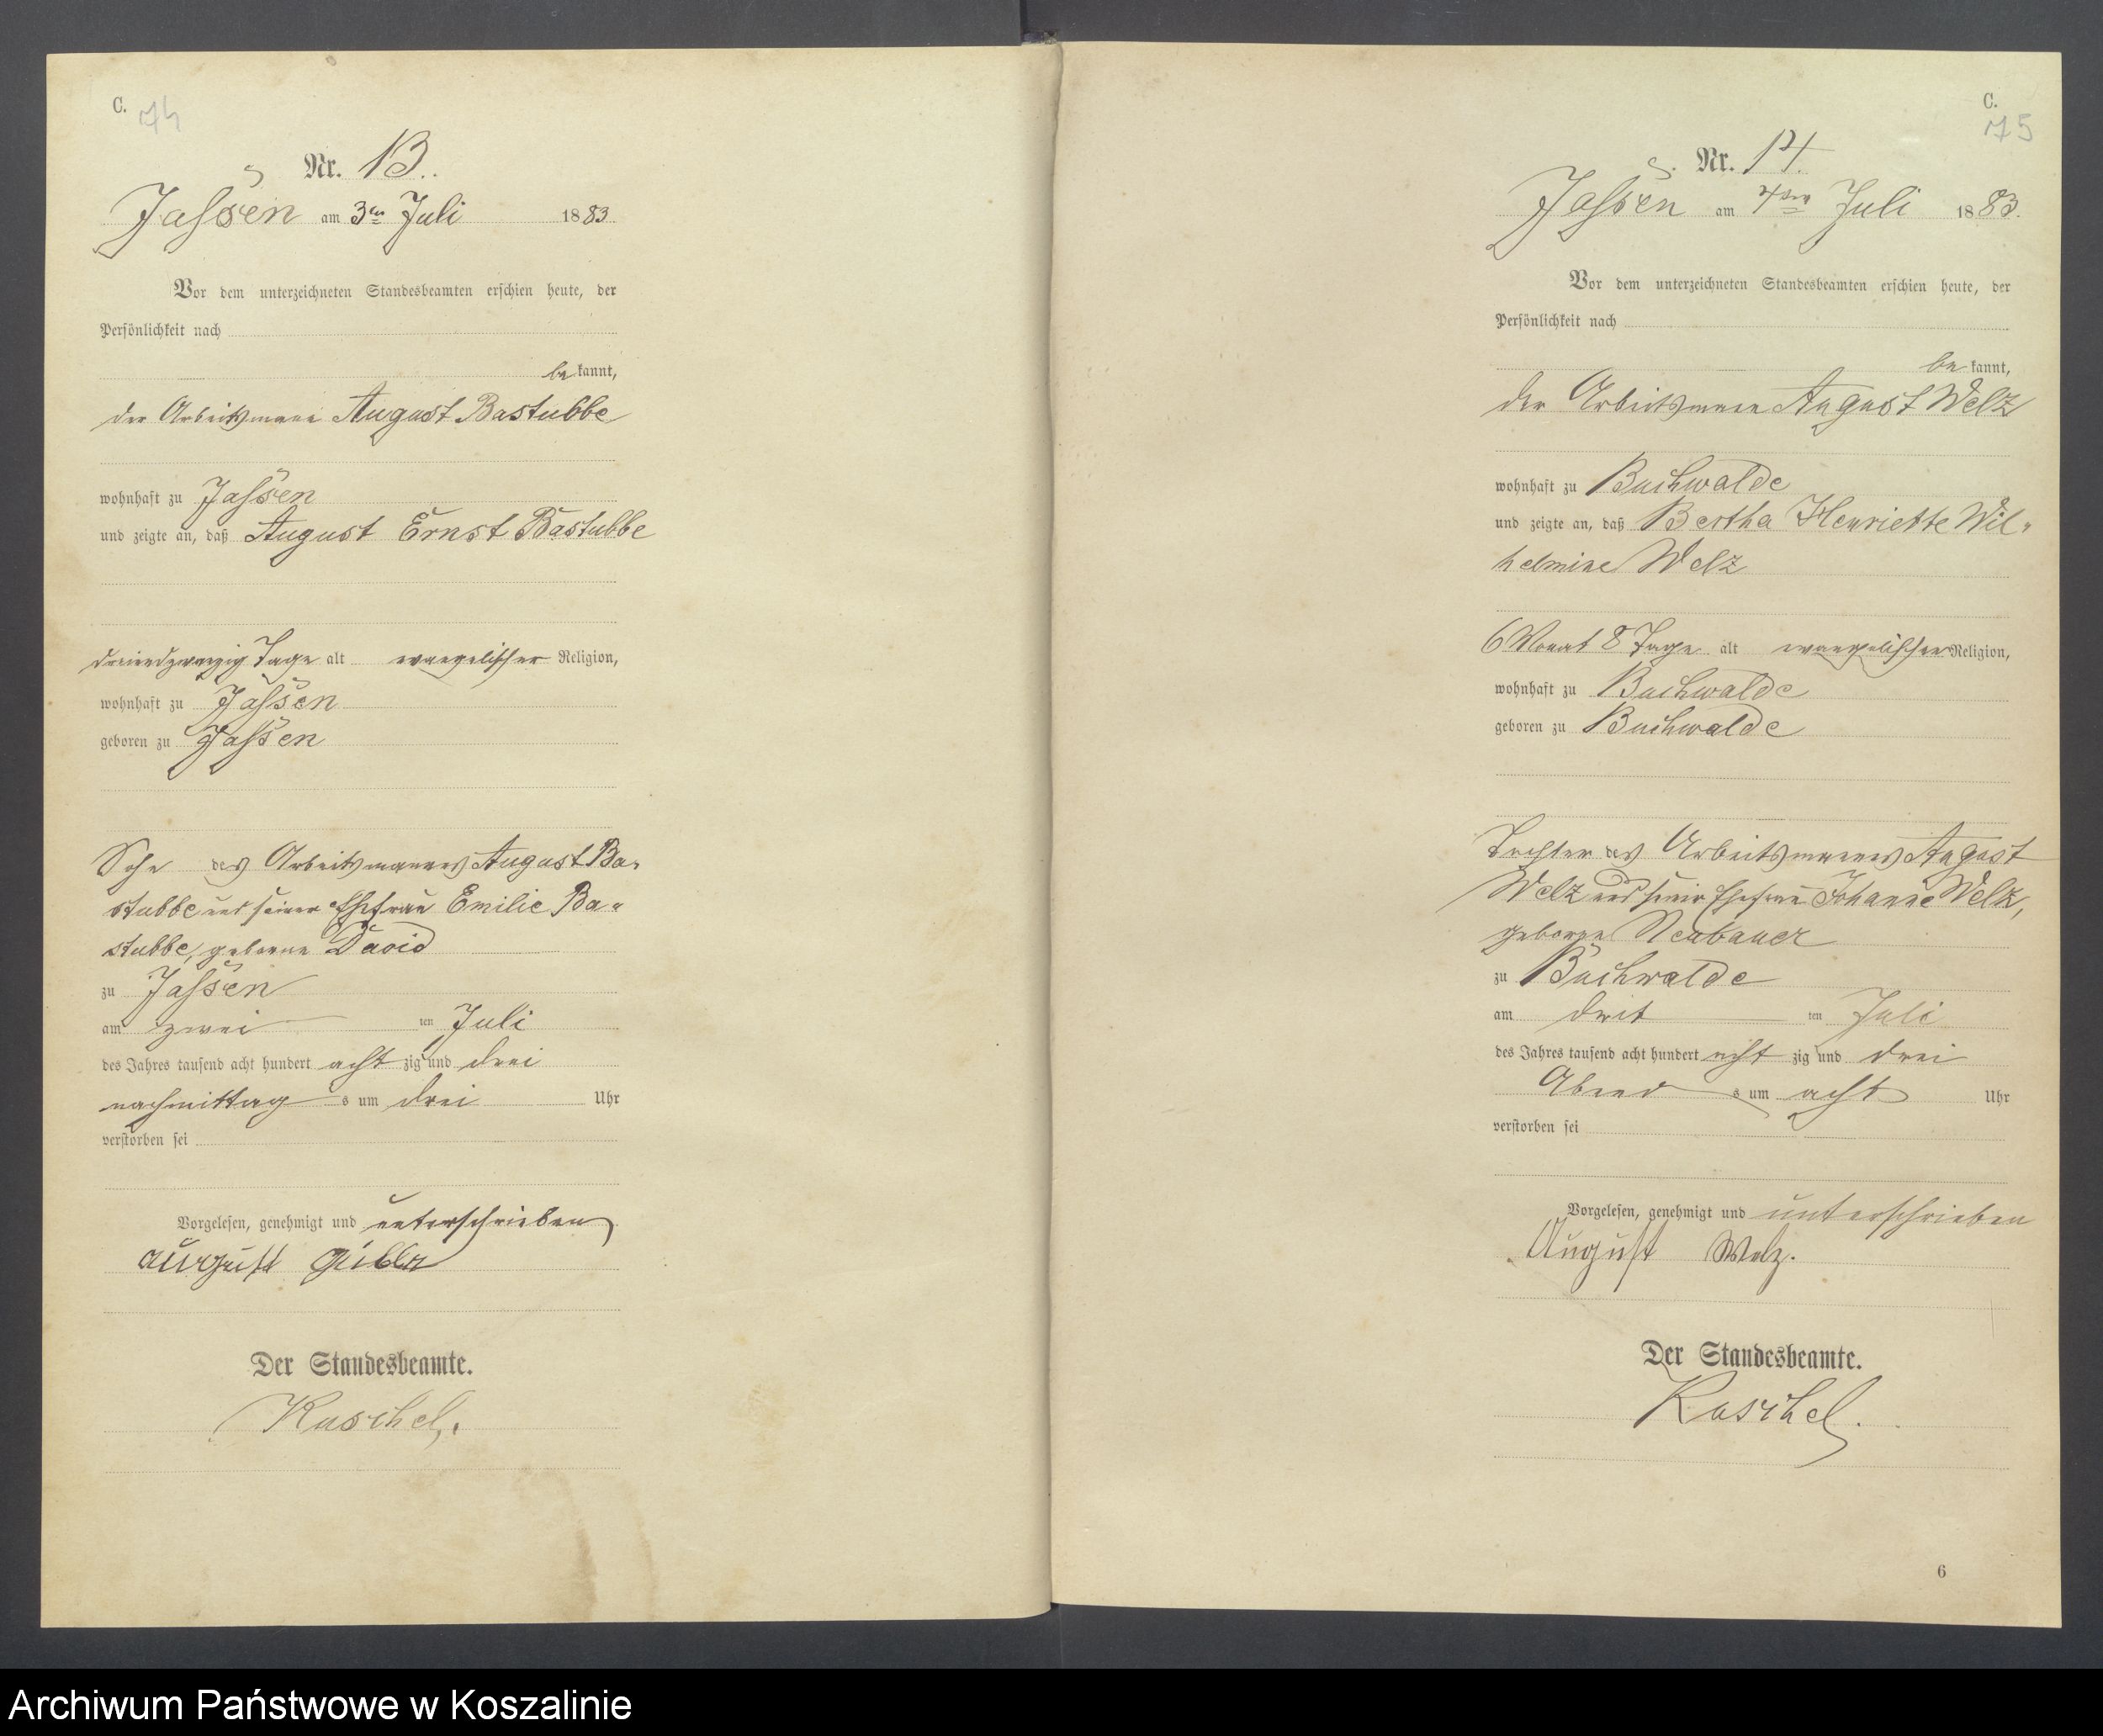 C. 74
Nr. 13.
Jassen am 3ten Juli 1883.
Vor dem unterzeichneten Standesbeamten erschien heute, der
Persönlichkeit nach
be kannt,
der Arbeitsmann August Bastubbe
wohnhaft zu Jassen
und zeigte an, daß August Ernst Bastubbe
dreiundzwanzig Tage alt evangelischer Religion,
wohnhaft zu Jassen
geboren zu Jassen
Sohn des Arbeitsmannes August Ba-
stubbe und seiner Ehefrau Emilie Ba-
stubbe, geborene David
zu Jassen
am zwei ten Juli
des Jahres tausend acht hundert acht zig und drei
nachmittag s um drei Uhr
verstorben sei
Vorgelesen, genehmigt und unterschrieben
August
Der Standesbeamte.
Kuschel.
C.
75
Nr. 14.
Jassen am 4ten Juli 1883.
Vor dem unterzeichneten Standesbeamten erschien heute, der
Persönlichkeit nach
be kannt,
der Arbeitsmann August Welz
wohnhaft zu Buchwalde
und zeigte an, daß Bertha Henriette Wil-
helmine Welz
6 Monat 8 Tage alt evangelischer Religion,
wohnhaft zu Buchwalde
geboren zu Buchwalde
Tochter des Arbeitsmannes August
Welz und seiner Ehefrau Johanne Welz,
geborene Neubauer
zu Buchwalde
am drit ten Juli
des Jahres tausend acht hundert acht zig und drei
Abend s um acht Uhr
verstorben sei
Vorgelesen, genehmigt und unterschrieben
August Welz.
Der Standesbeamte.
Kuschel.
6
Archiwum Państwowe w Koszalinie